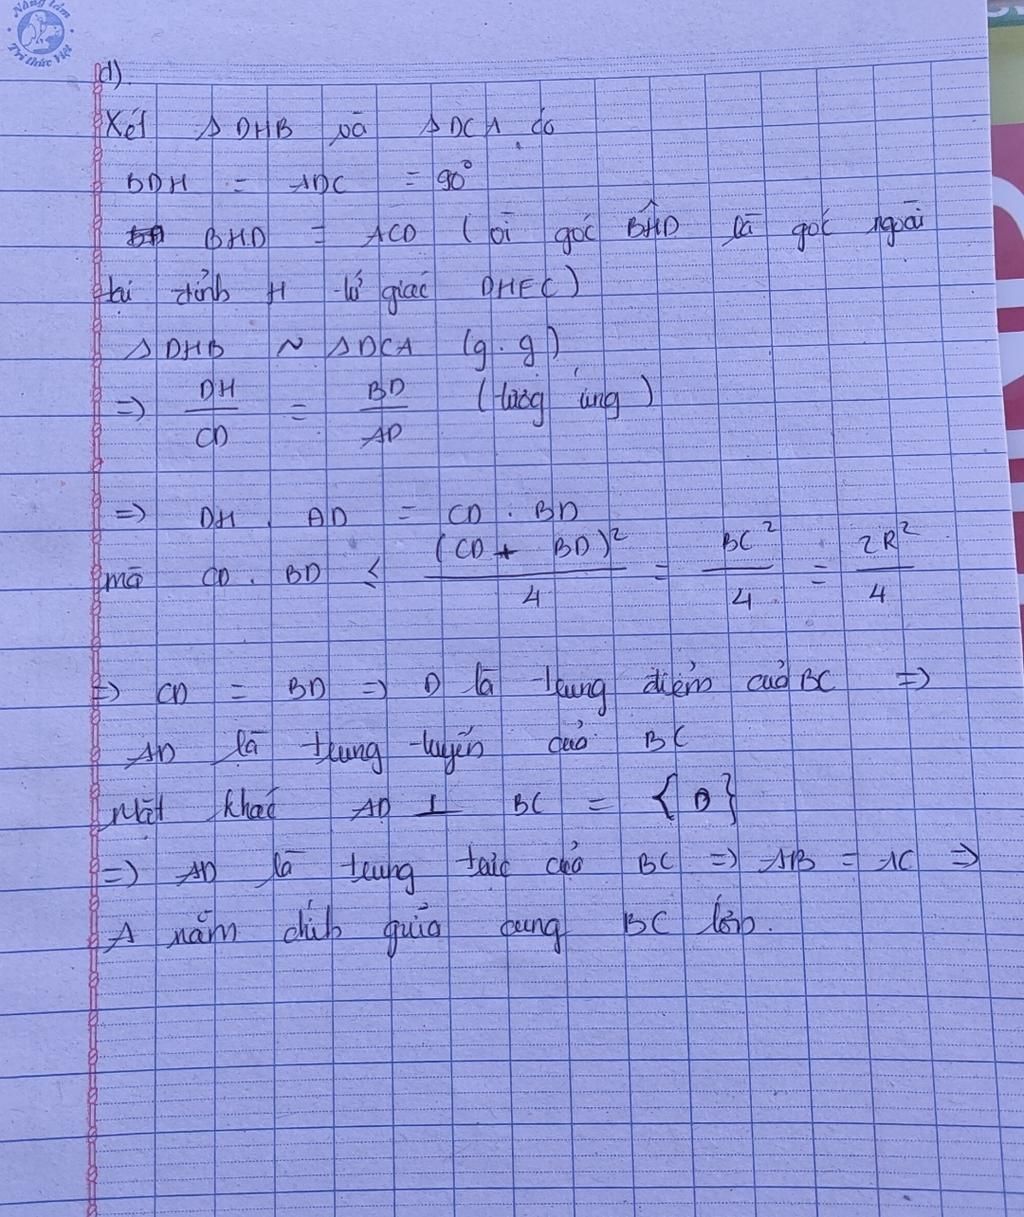 Nâng tầm
Tri thức Việt
d).
Xét Δ DHB và Δ DCA có
BDH = ADC = 90°
BHD = ACD (vì góc BĤD là góc ngoài
tại đỉnh H tứ giác DHEC)
Δ DHB ~ Δ DCA (g.g)
=> DH/CD = BD/AD (tương ứng)
=> DH . AD = CD . BD
mà CD . BD ≤ (CD + BD)²/4 = BC²/4 = 2R²/4
=> CD = BD => D là trung điểm của BC =>
AD là trung tuyến của BC
Mặt khác AD ⊥ BC = {D}
=> AD là trung trực của BC => AB = AC =>
A nằm chính giữa cung BC lớn.